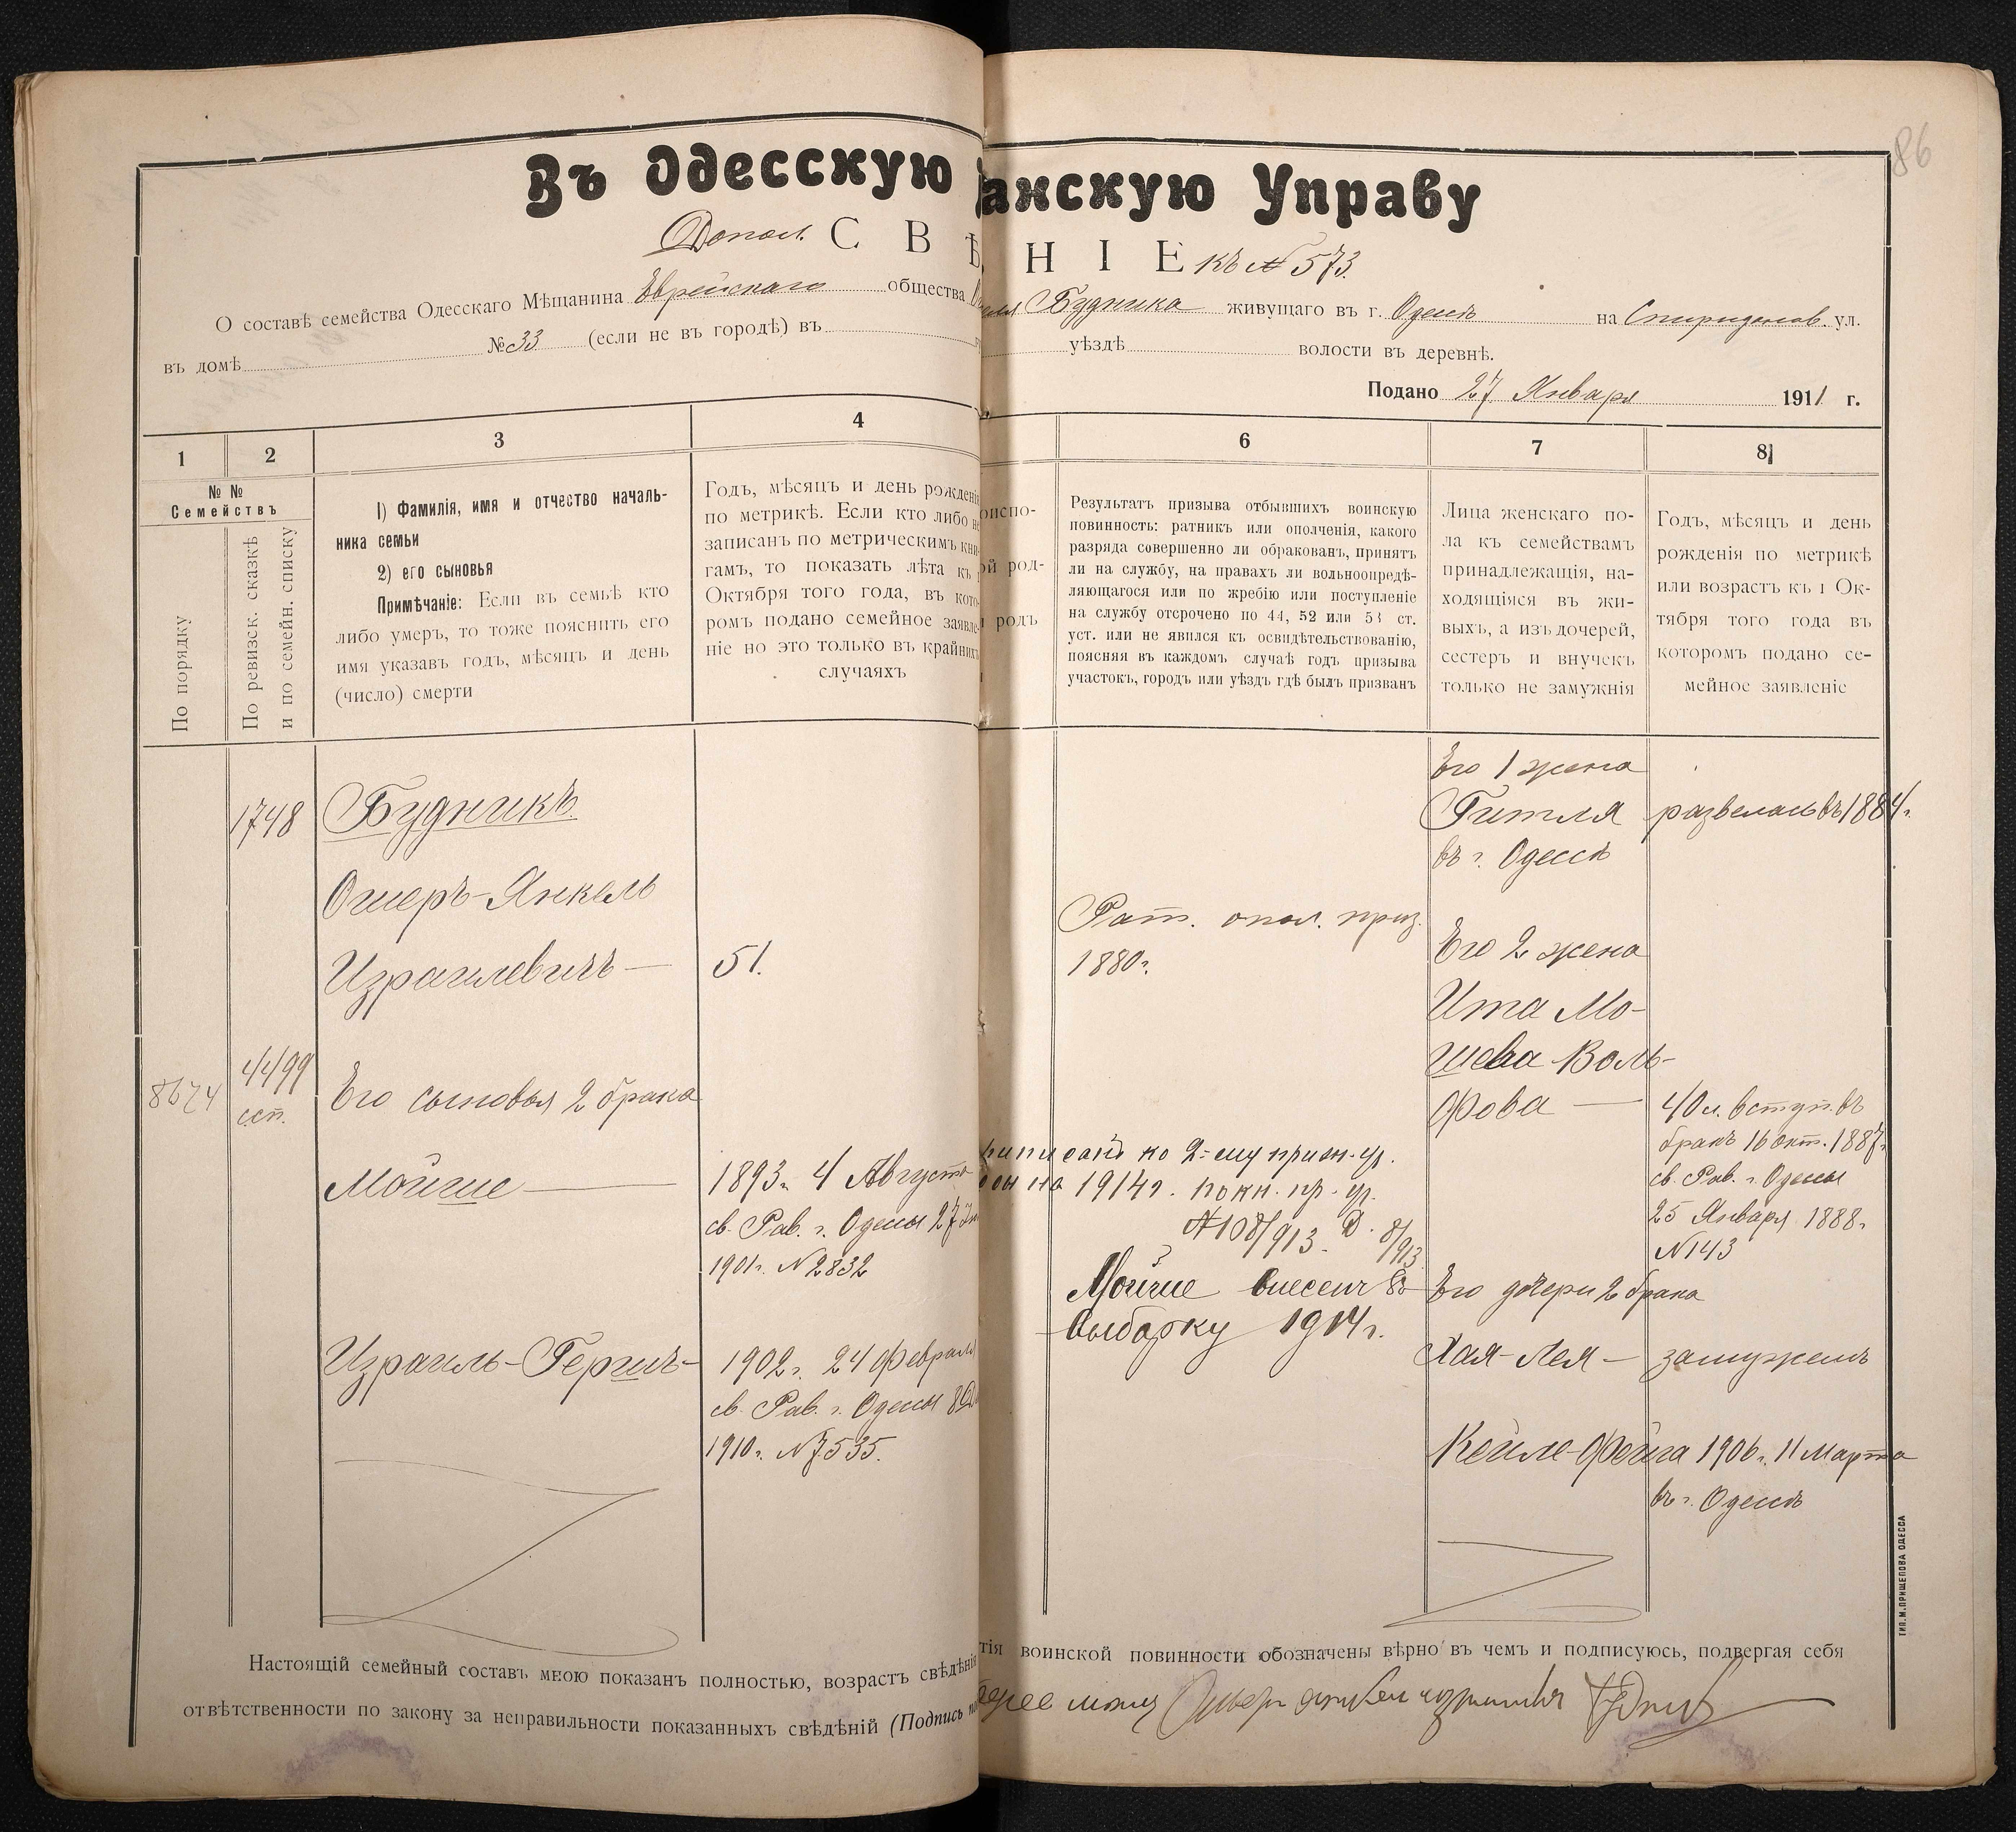 86
Въ Одесскую анскую Управу
Допол. С В Ѣ Н І Е къ № 573.
О составѣ семейства Одесскаго Мѣщанина Еврейскаго общества Будника живущаго въ г. Одессѣ на Спиридонов. ул.
въ домѣ № 33 (если не въ городѣ) въ уѣздѣ волости въ деревнѣ.
Подано 27 Января 1911 г.
1
2
3
4
6
7
8
№ №
Семействъ
По порядку
По ревизск. сказкѣ
и по семейн. списку
1) Фамилія, имя и отчество началь-
ника семьи
2) его сыновья
Примѣчаніе: Если въ семьѣ кто
либо умеръ, то тоже пояснить его
имя указавъ годъ, мѣсяцъ и день
(число) смерти
Годъ, мѣсяцъ и день рожденія
по метрикѣ. Если кто либо не
записанъ по метрическимъ кни-
гамъ, то показать лѣта къ 1
Октября того года, въ кото-
ромъ подано семейное заявле-
ніе но это только въ крайнихъ
случаяхъ
оиспо-
ой род-
родъ
Результатъ призыва отбывшихъ воинскую
повинность: ратникъ или ополченія, какого
разряда совершенно ли обракованъ, принятъ
ли на службу, на правахъ ли вольноопредѣ-
ляющагося или по жребію или поступленіе
на службу отсрочено по 44, 52 или 53 ст.
уст. или не явился къ освидѣтельствованію,
поясняя въ каждомъ случаѣ годъ призыва
участокъ, городъ или уѣздъ гдѣ былъ призванъ
Лица женскаго по-
ла къ семействамъ
принадлежащія, на-
ходящіяся въ жи-
выхъ, а изъ дочерей,
сестеръ и внучекъ
только не замужнія
Годъ, мѣсяцъ и день
рожденія по метрикѣ
или возрастъ къ 1 Ок-
тября того года въ
которомъ подано се-
мейное заявленіе
1748
Будникъ.
Ошеръ-Янкель
Израилевичъ — 51.
8624
4499
сп.
Его сыновья 2 брака
Мойше — 1893г. 4 Августа
св. Рав. г. Одессы 27
1901г. № 2832
Израиль-Гершъ- 1902г. 24 Февраля
св. Рав. г. Одессы 8
1910г. № 7535.
Рат. опол. приз.
1880г.
ко 2-му призн. уч.
на 1914г. по кн. пр. уч.
№ 108/913. Д. 8/913
Мойше внесенъ въ
выборку 1914г.
Его 1 жена
Гитля развелась въ 1884г.
въ г. Одессѣ
Его 2 жена
Ита Мо-
шева Воль-
фова — 40 л. вступ. въ
бракъ 16 окт. 1887г.
св. Рав. г. Одессы
25 Января 1888г.
№ 143
Его дочери 2 брака
Хая-Лея — замужемъ
Кейле-Фейга 1906г. 11 Марта
въ г. Одессѣ
Настоящій семейный составъ мною показанъ полностью, возрастъ свѣдѣнія
тія воинской повинности обозначены вѣрно въ чемъ и подписуюсь, подвергая себя
отвѣтственности по закону за неправильности показанныхъ свѣдѣній (Подпись
ТИП. М. ПРИЩЕПОВА ОДЕССА